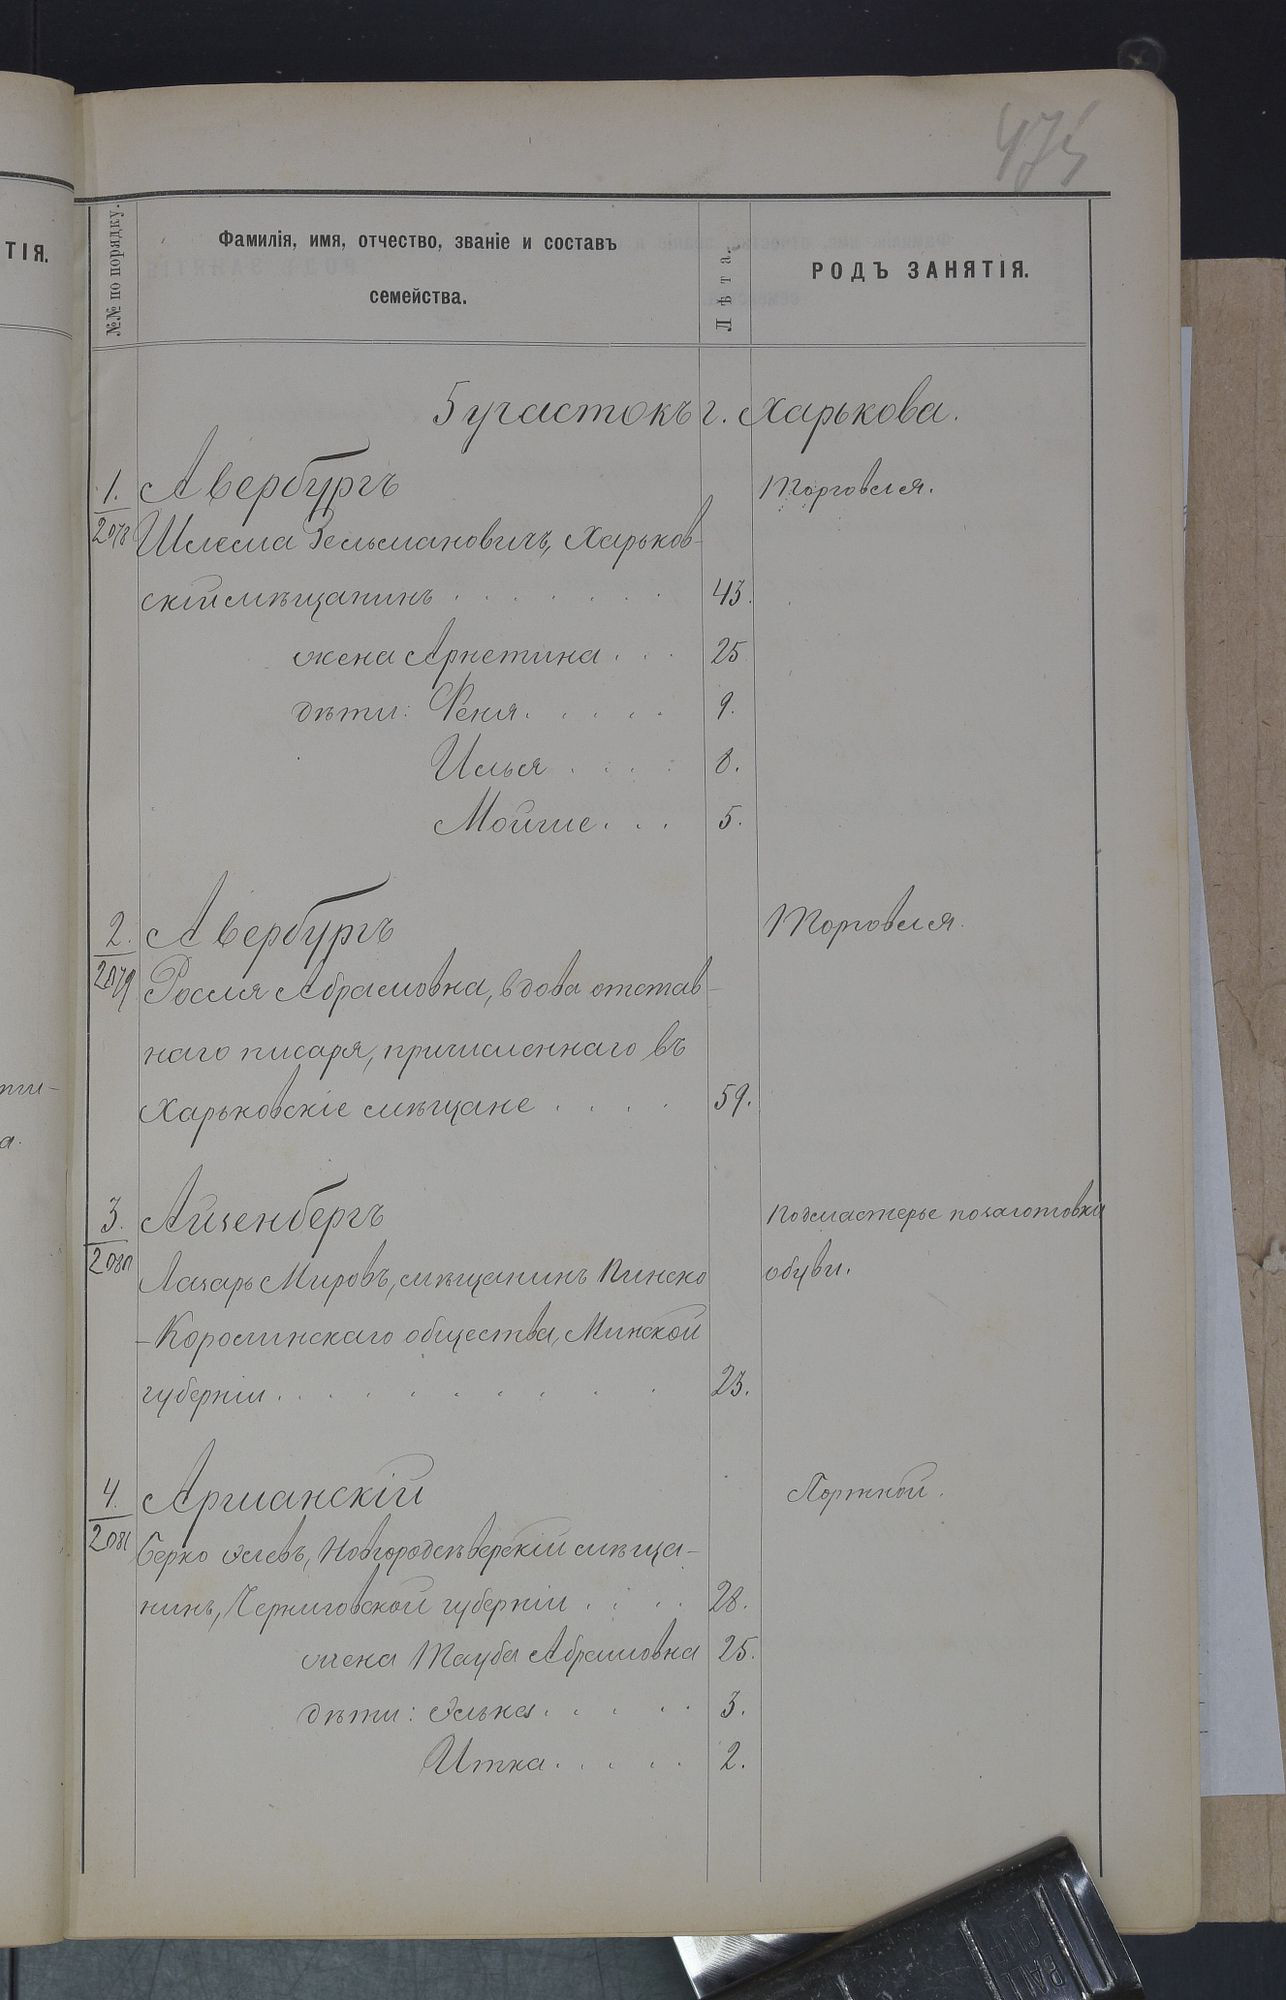 475
ТІЯ.
№№ по порядку.
Фамилія, имя, отчество, званіе и составъ
семейства.
Лѣта.
РОДЪ ЗАНЯТІЯ.
5 участокъ г. Харькова.
1. Авербургъ Торговля.
2078 Шлема Зельмановичъ, Харьков-
скій мѣщанинъ 43.
жена Арнетина 25
дѣти: Феня 9.
Илья 8.
Мойше 5.
2. Авербургъ Торговля.
2079 Росля Абрамовна, вдова отстав-
наго писаря, причисленнаго въ
Харьковскіе мѣщане 59.
3. Айзенбергъ Подмастерье по заготовки
2080 Лазарь Мировъ, мѣщанинъ Пинско обуви.
-Каролинскаго общества, Минской
губерніи 23.
4. Аршанскій Портной.
2081 Берко Элевъ, Новгородсѣверскій мѣща-
нинъ, Черниговской губерніи 28.
жена Тауба Абрамовна 25.
дѣти: Элька 3.
Итка 2.